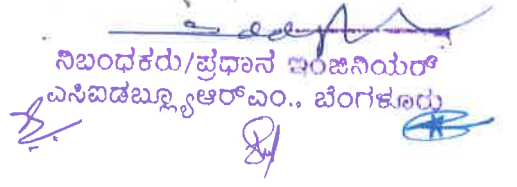 ನಿಬಂಧಕರು/ಪ್ರಧಾನ ಇಂಜಿನಿಯರ್
ಎಸಿಐಡಬ್ಲ್ಯೂಆರ್‌ಎಂ., ಬೆಂಗಳೂರು